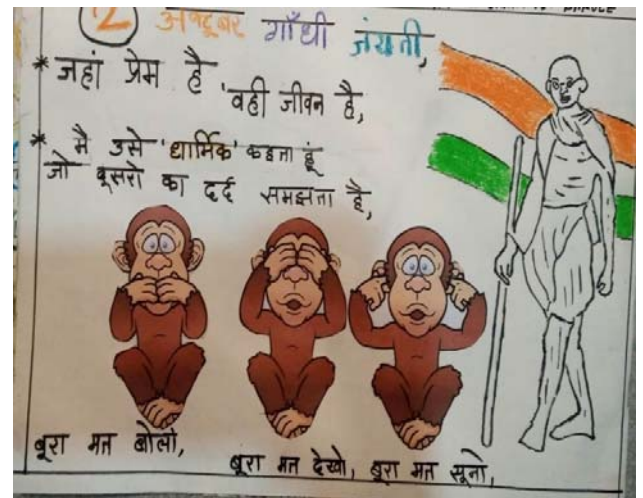 2 अक्टूबर गाँधी जंयती,
* जहां प्रेम है 'वही जीवन है,
* मै उसे 'धार्मिक' कहता हूं
जो दूसरो का दर्द समझता है,
बूरा मत बोलो,
बूरा मत देखो, बूरा मत सूनो,